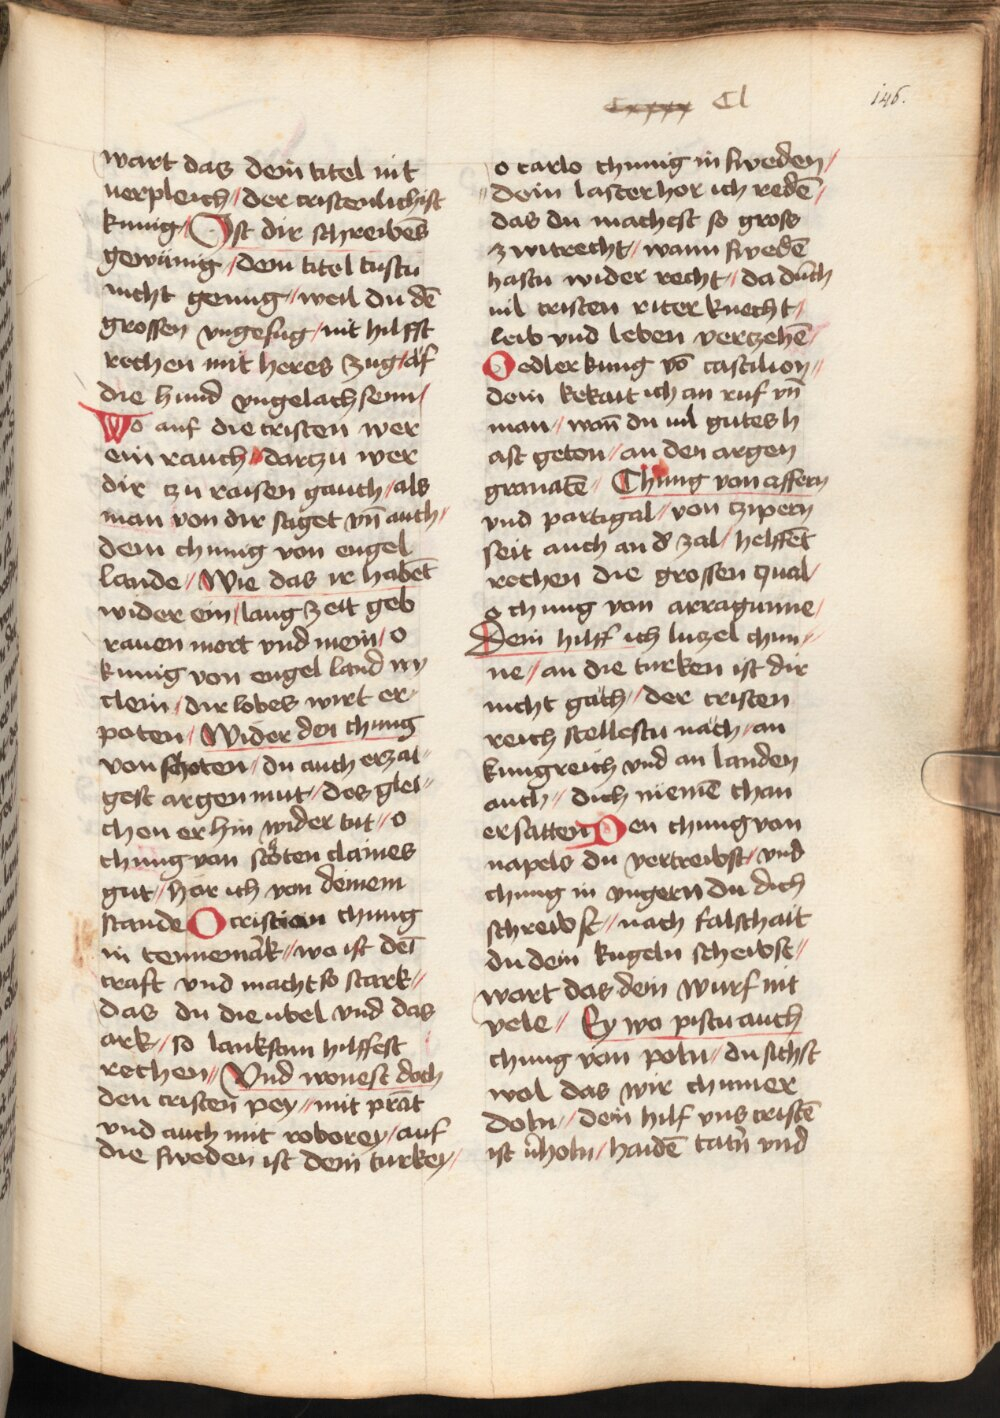 Cl
146.
wart das dein titel nit
verpleich / der cristenlichist
kunig / Ist dir schreibens
gewünig / dem titel tustu
nicht genug // weil du dē
grossen vngefug / nit hilffst
rechen mit heres zug / af
die hund vngelachsenn /
Wo auf die cristen wer
ein rauch // dartzu wer
dir zu raisen gauch / als
man von dir saget vn̄ auch /
dem chunig von engel
lande / Wie das ir habēt
wider ein / lang zeit geb
rauen mort vnd mein / o
kunig von engel land ny
clein / dir lobes wirt er-
poten / Wider den chunig
von schoten / du auch erzai-
gest argen mut / des glei-
chen er hin wider tut // o
chunig von scoten claines
gut / hör ich von deinem
stande O cristian chunig
in tennemark // wo ist dei
craft vnd macht so stark //
das du die vbel vnd das
ark / so lanksam hilffest
rechen // Vnd wonest doch
den cristen pey // mit prāt
vnd auch mit roborey / auf
die sweden ist dein turkey /
o carlo chunig in sweden /
dein laster hor ich redē /
das du machest so gross
zwitrecht / wann swedē
hastu wider recht / da durch
vil cristen riter knecht /
leib vnd leben verzehē /
O edler kunig vō castilion //
dein kekait ich an ruf vn̄
man / wan̄ du vil gutes h
ast geton / an den argen
granatē // Chunig von affern
vnd portigal / von tzipern
seit auch an d zal / helffēt
rechen die grossen qual /
o chunig von arragunne /
Dein hilff ich lutzel chun-
ne // an die turken ist dir
nicht gach / der cristen
reich stellestu nach / an
kungreich vnd an landen
auch // dich niemē chan
ersatten Den chunig von
napels du vertreibst / vnd
chunig in vngern du dich
schreibst // nach falschait
du dein kugeln scheibst //
wart das dein wurf nit
vele // Ey wo pistu auch
chunig von poln / du sichst
wol das wir chumer
doln / dein hilf vns cristē
ist v̄holn / haidē tatn̄ vnd